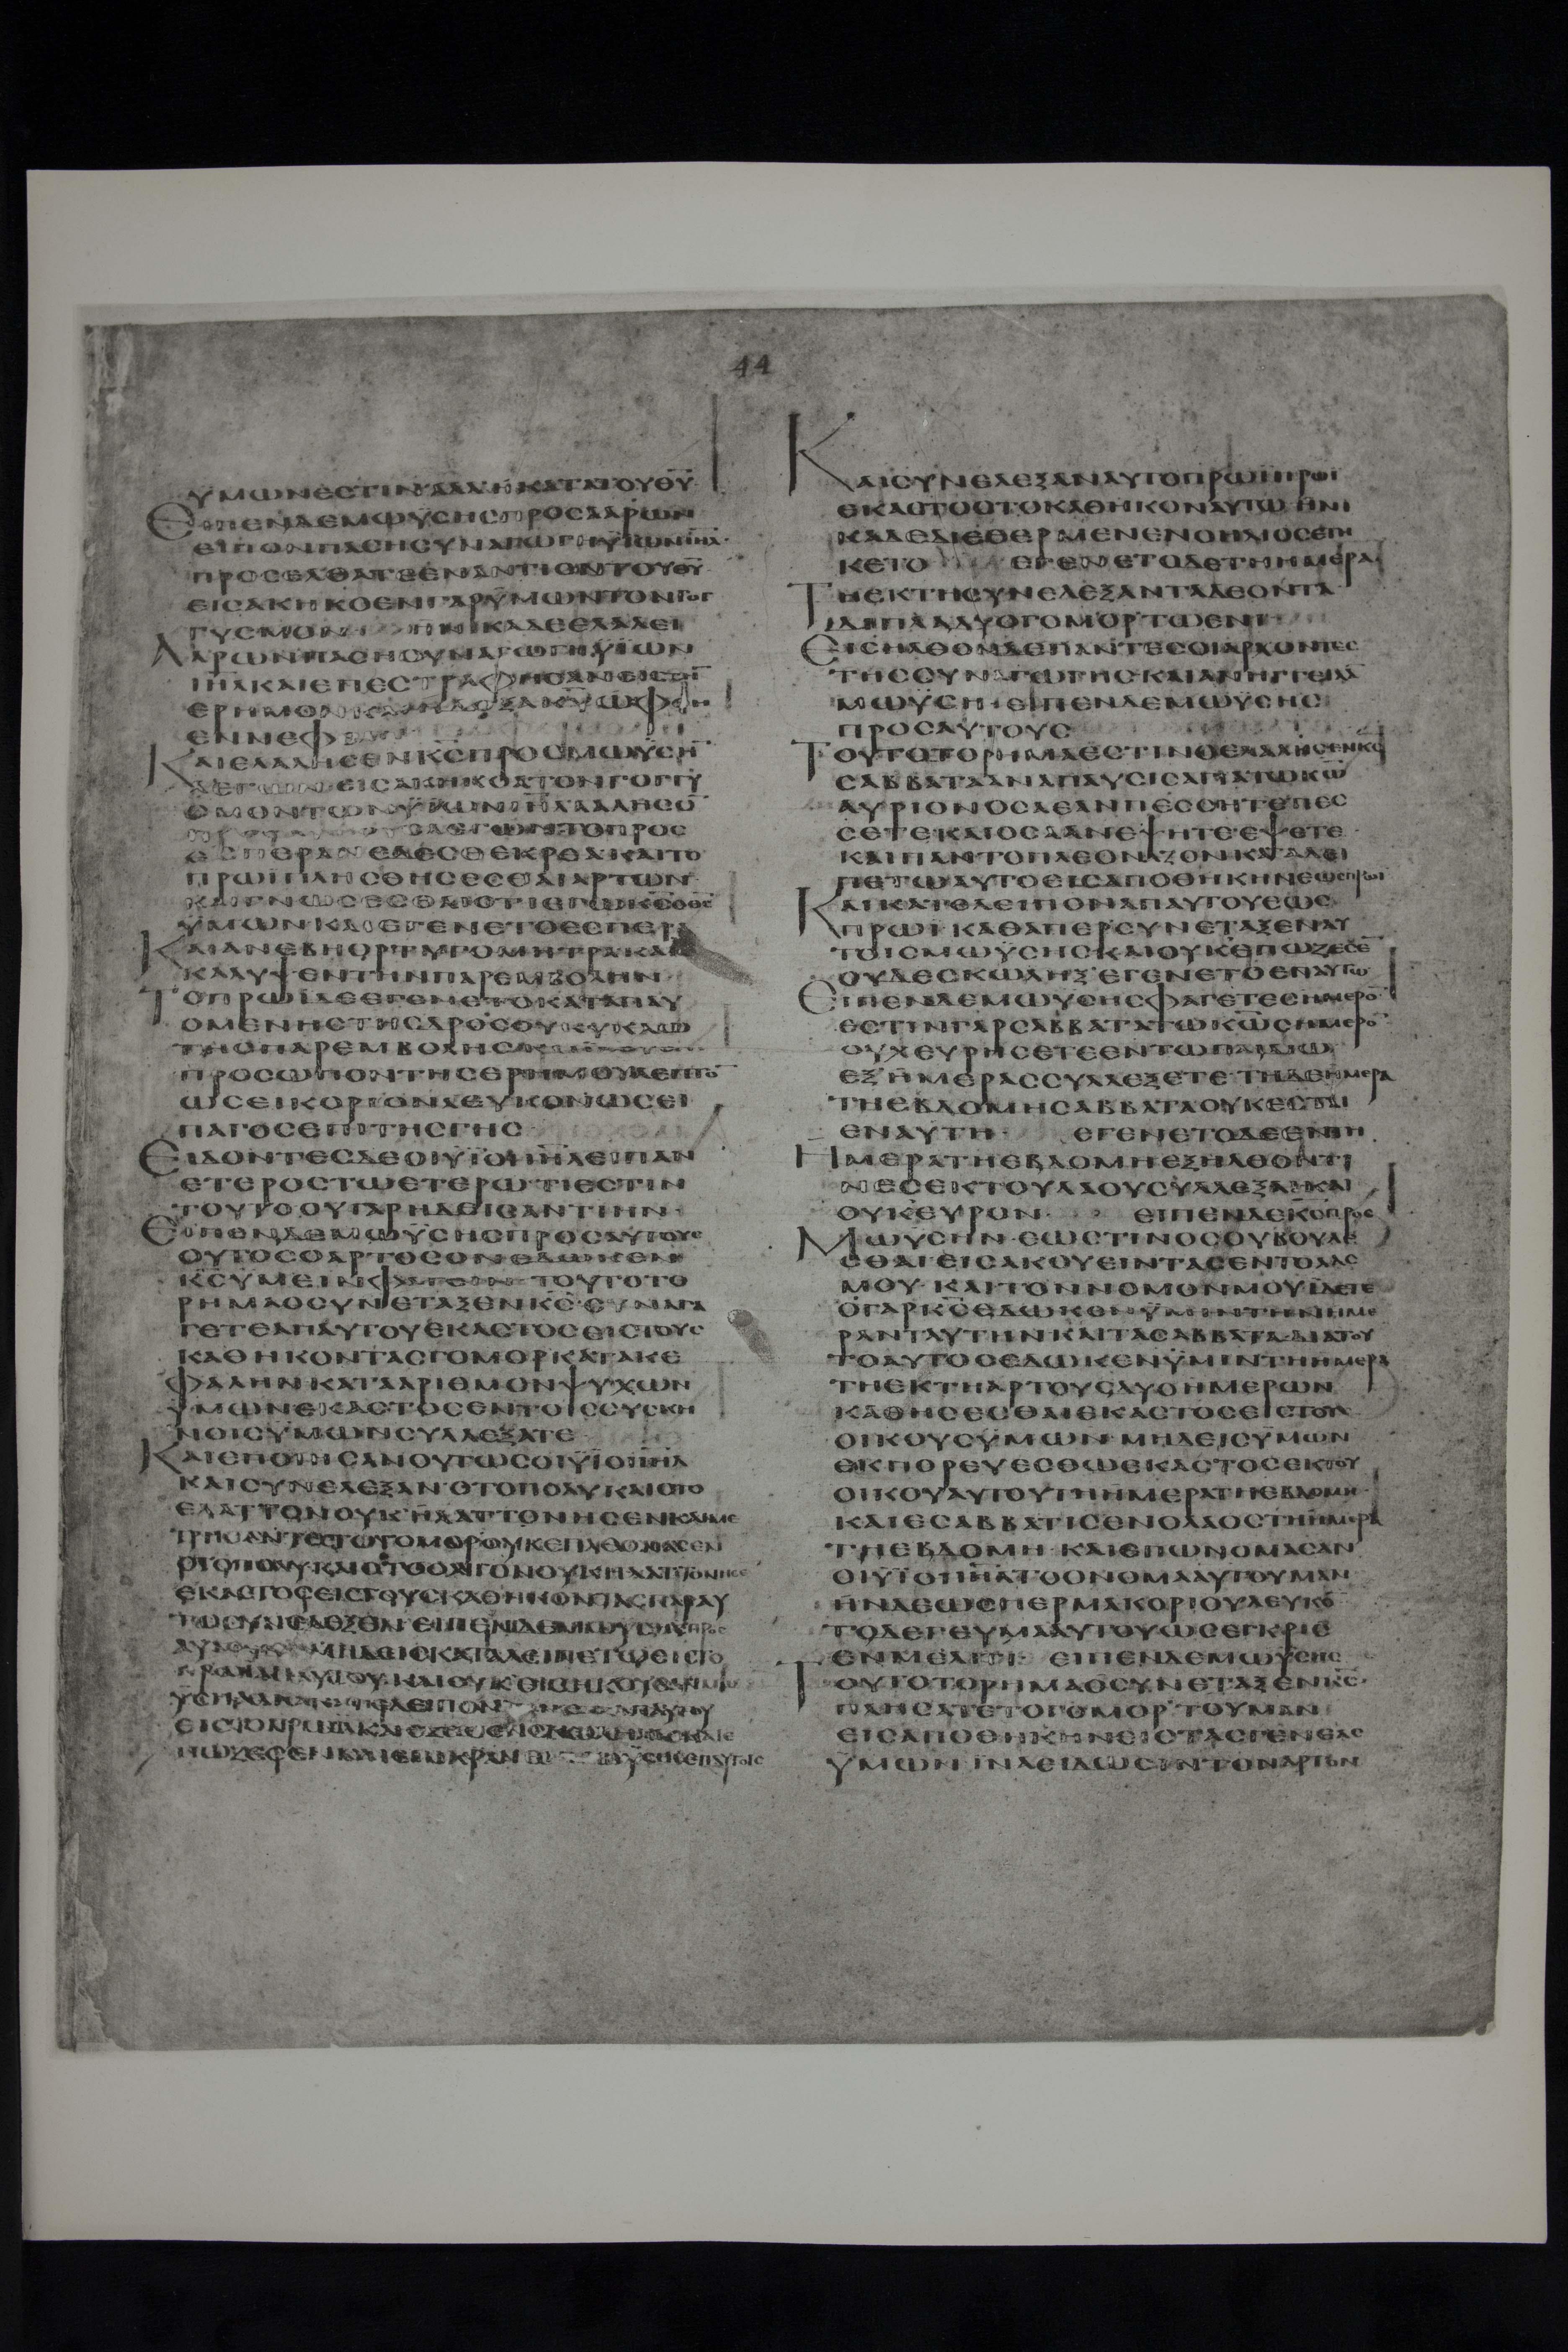 44
ΥΜΩΝΕCΤΙΝΑΛΛΗΚΑΤΑΤΟΥΘΥ
ΕΙΠΕΝΔΕΜΩΥCΗCΠΡΟCΑΑΡΩΝ
ΕΙΠΟΝΠΑCΗCΥΝΑΓΩΓΗΥΙΩΝΙΗΛ
ΠΡΟCΕΛΘΑΤΕΕΝΑΝΤΙΟΝΤΟΥΘΥ
ΕΙCΑΚΗΚΟΕΝΓΑΡΥΜΩΝΤΟΝΓΟΓ
ΓΥCΜΟΝ ΗΝΙΚΑΔΕΕΛΑΛΕΙ
ΑΑΡΩΝΠΑCΗCΥΝΑΓΩΓΗΥΙΩΝ
ΙΗΛΚΑΙΕΠΕCΤΡΑΦΗCΑΝΕΙCΤΗ
ΕΡΗΜΟΝΚΑΙΗΔΟΞΑΚΥΩΦΘΗ
ΕΝΝΕΦ
ΚΑΙΕΛΑΛΗCΕΝΚCΠΡΟCΜΩΥCΗ
ΛΕΓΩΝΕΙCΑΚΗΚΟΑΤΟΝΓΟΓΓΥ
CΜΟΝΤΩΝΥΙΩΝΙΗΛΛΑΛΗCΟ
ΛΕΓΩΝΤΟΠΡΟC
ΕCΠΕΡΑΝΕΔΕCΘΕΚΡΕΑΚΑΙΤΟ
ΠΡΩΙΠΛΗCΘΗCΕCΘΑΙΑΡΤΩΝ
ΚΑΙΓΝΩCΕCΘΑΙΟΤΙΕΓΩΚCΟΘC
ΥΜΩΝΚΑΙΕΓΕΝΕΤΟΕCΠΕΡΑ
ΚΑΙΑΝΕΒΗΟΡΤΥΓΟΜΗΤΡΑΚΑΙ
ΚΑΛΥΨΕΝΤΗΝΠΑΡΕΜΒΟΛΗΝ
ΤΟΠΡΩΙΔΕΕΓΕΝΕΤΟΚΑΤΑΠΑΥ
ΟΜΕΝΗCΤΗCΔΡΟCΟΥΚΥΚΛΩ
ΤΗCΠΑΡΕΜΒΟΛΗC
ΠΡΟCΩΠΟΝΤΗCΕΡΗΜΟΥΛΕΠΤΟ
ΩCΕΙΚΟΡΙΟΝΛΕΥΚΟΝΩCΕΙ
ΠΑΓΟCΕΠΙΤΗCΓΗC
ΕΙΔΟΝΤΕCΔΕΟΙΥΙΟΙΙΗΛΕΙΠΑΝ
ΕΤΕΡΟCΤΩΕΤΕΡΩΤΙΕCΤΙΝ
ΤΟΥΤΟΟΥΓΑΡΗΔΕΙCΑΝΤΙΗΝ
ΕΙΠΕΝΔΕΜΩΥCΗCΠΡΟCΑΥΤΟΥC
ΟΥΤΟCΟΑΡΤΟCΟΝΕΔΩΚΕΝ
ΚCΥΜΕΙΝΦΑΓΕΙΝ ΤΟΥΤΟΤΟ
ΡΗΜΑΟCΥΝΕΤΑΞΕΝΚC CΥΝΑΓΑ
ΓΕΤΕΑΠΑΥΤΟΥΕΚΑCΤΟCΕΙCΤΟΥC
ΚΑΘΗΚΟΝΤΑCΓΟΜΟΡΚΑΤΑΚΕ
ΦΑΛΗΝΚΑΤΑΑΡΙΘΜΟΝΨΥΧΩΝ
ΥΜΩΝΕΚΑCΤΟCΕΝΤΟΙCCΥCΚΗ
ΝΟΙCΥΜΩΝCΥΛΛΕΞΑΤΕ
ΚΑΙΕΠΟΙΗCΑΝΟΥΤΩCΟΙΥΙΟΙΙΗΛ
ΚΑΙCΥΝΕΛΕΞΑΝΟΤΟΠΟΛΥΚΑΙΟΤΟ
ΕΛΑΤΤΟΝΟΥΚΗΛΑΤΤΟΝΗCΕΝΚΑΙΜΕ
ΤΡΗCΑΝΤΕCΤΩΓΟΜΟΡΟΥΚΕΠΛΕΟΝΑCΕΝ
ΟΤΟΠΟΛΥΚΑΙΟΤΟΟΛΙΓΟΝΟΥΚΗΛΑΤΤΟΝΗCΕ
ΕΚΑCΤΟCΕΙCΤΟΥCΚΑΘΗΚΟΝΤΑCΠΑΡΑΥ
ΤΩCΥΝΕΛΕΞΑΝΕΙΠΕΝΔΕΜΩΥCΗCΠΡΟC
ΑΥΤΟΥC ΜΗΔΕΙCΚΑΤΑΛΕΙΠΕΤΩΕΙCΤΟ
ΠΡΩΙΑΠΑΥΤΟΥΚΑΙΟΥΚΕΙCΗΚΟΥCΑΝΜΩ
ΕΙCΤΟΠΡΩΙ
ΚΑΙCΥΝΕΛΕΞΑΝΑΥΤΟΠΡΩΙΠΡΩΙ
ΕΚΑCΤΟCΤΟΚΑΘΗΚΟΝΑΥΤΩΗΝΙ
ΚΑΔΕΔΙΕΘΕΡΜΕΝΕΝΟΗΛΙΟCΕΤΗ
ΚΕΤΟ ΕΓΕΝΕΤΟΔΕΤΗΗΜΕΡΑ
ΤΗΕΚΤΗCΥΝΕΛΕΞΑΝΤΑΔΕΟΝΤΑ
ΔΙΠΛΑΔΥΟΓΟΜΟΡΤΩΕΝΙ
ΕΙCΗΛΘΟΝΔΕΠΑΝΤΕCΟΙΑΡΧΟΝΤΕC
ΤΗCCΥΝΑΓΩΓΗCΚΑΙΑΝΗΓΓΕΙΛΑ
ΜΩΥCΗ ΕΙΠΕΝΔΕΜΩΥCΗC
ΠΡΟCΑΥΤΟΥC
ΤΟΥΤΟΤΟΡΗΜΑΕCΤΙΝΟΕΛΑΛΗCΕΝΚC
CΑΒΒΑΤΑΑΝΑΠΑΥCΙCΑΓΙΑΤΩΚΩ
ΑΥΡΙΟΝΟCΑΕΑΝΠΕCCΗΤΕΠΕC
CΕΤΕΚΑΙΟCΑΑΝΕΨΗΤΕΕΨΕΤΕ
ΚΑΙΠΑΝΤΟΠΛΕΟΝΑΖΟΝΚΑΤΑΛΕΙ
ΠΕΤΩΑΥΤΟΕΙCΑΠΟΘΗΚΗΝΕΩCΠΡΩΙ
ΚΑΙΚΑΤΕΛΕΙΠΟΝΑΠΑΥΤΟΥΕΩC
ΠΡΩΙΚΑΘΑΠΕΡCΥΝΕΤΑΞΕΝΑΥ
ΤΟΙCΜΩΥCΗCΚΑΙΟΥΚΕΠΩΖΕCΕ
ΟΥΔΕCΚΩΛΗΞΕΓΕΝΕΤΟΕΝΑΥΤΩ
ΕΙΠΕΝΔΕΜΩΥCΗCΦΑΓΕΤΕCΗΜΕΡΟ
ΕCΤΙΝΓΑΡCΑΒΒΑΤΑΤΩΚΩCΗΜΕΡΟ
ΟΥΧΕΥΡΗCΕΤΕΕΝΤΩΠΑΙΔΙΩ
ΕΞΗΜΕΡΑCCΥΛΛΕΞΕΤΕΤΗΔΕΗΜΕΡΑ
ΤΗΕΒΔΟΜΗCΑΒΒΑΤΑΟΥΚΕCΤΑΙ
ΕΝΑΥΤΗ ΕΓΕΝΕΤΟΔΕΕΝΤΗ
ΗΜΕΡΑΤΗΕΒΔΟΜΗΕΞΗΛΘΟΝΤΙ
ΝΕCΕΚΤΟΥΛΑΟΥCΥΛΛΕΞΑΙΚΑΙ
ΟΥΚΕΥΡΟΝ ΕΙΠΕΝΔΕΚCΠΡΟC
ΜΩΥCΗΝ ΕΩCΤΙΝΟCΟΥΒΟΥΛΕ
CΘΑΙΕΙCΑΚΟΥΕΙΝΤΑCΕΝΤΟΛΑC
ΜΟΥ ΚΑΙΤΟΝΝΟΜΟΝΜΟΥΙΔΕΤΕ
ΟΓΑΡΚCΕΔΩΚΕΝΥΜΙΝΤΗΝΗΜΕ
ΡΑΝΤΑΥΤΗΝΚΑΙΤΑCΑΒΒΑΤΑΔΙΑΤΟΥ
ΤΟΑΥΤΟCΕΔΩΚΕΝΥΜΙΝΤΗΗΜΕΡΑ
ΤΗΕΚΤΗΑΡΤΟΥCΔΥΟΗΜΕΡΩΝ
ΚΑΘΗCΕCΘΑΙΕΚΑCΤΟCΕΙCΤΟΥC
ΟΙΚΟΥCΥΜΩΝ ΜΗΔΕΙCΥΜΩΝ
ΕΚΠΟΡΕΥΕCΘΩΕΚΑCΤΟCΕΚΤΟΥ
ΟΙΚΟΥΑΥΤΟΥΤΗΗΜΕΡΑΤΗΕΒΔΟΜΗ
ΚΑΙΕCΑΒΒΑΤΙCΕΝΟΛΑΟCΤΗΗΜΕΡΑ
ΤΗΕΒΔΟΜΗ ΚΑΙΕΠΩΝΟΜΑCΑΝ
ΟΙΥΙΟΙΙΗΛΤΟΟΝΟΜΑΑΥΤΟΥΜΑΝ
ΗΝΔΕΩCΠΕΡΜΑΚΟΡΙΟΥΛΕΥΚΟ
ΤΟΔΕΓΕΥΜΑΑΥΤΟΥΩCΕΓΚΡΙC
ΕΝΜΕΛΙΤΙ ΕΙΠΕΝΔΕΜΩΥCΗC
ΤΟΥΤΟΤΟΡΗΜΑΟCΥΝΕΤΑΞΕΝΚC
ΠΛΗCΑΤΕΤΟΓΟΜΟΡΤΟΥΜΑΝ
ΕΙCΑΠΟΘΗΚΗΝΕΙCΤΑCΓΕΝΕΑC
ΥΜΩΝ ΙΝΑΕΙΔΩCΙΝΤΟΝΑΡΤΟΝ